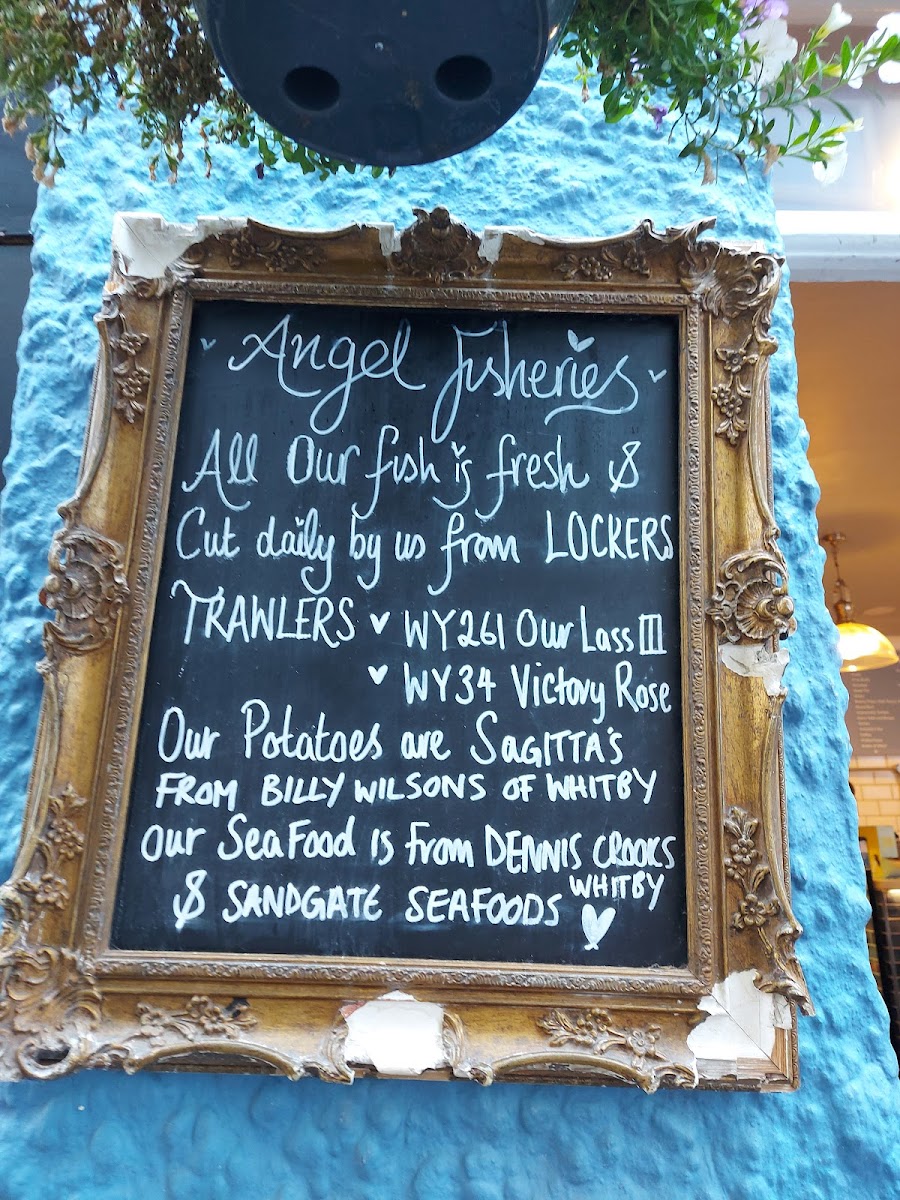 Angel Fisheries
All Our fish is fresh &
Cut daily by us from LOCKERS
TRAWLERS ♥ WY261 Our Lass III
♥ WY34 Victory Rose
Our Potatoes are SAGITTA'S
FROM BILLY WILSONS OF WHITBY
Our SeaFood is From DENNIS CROOKS
& SANDGATE SEAFOODS WHITBY